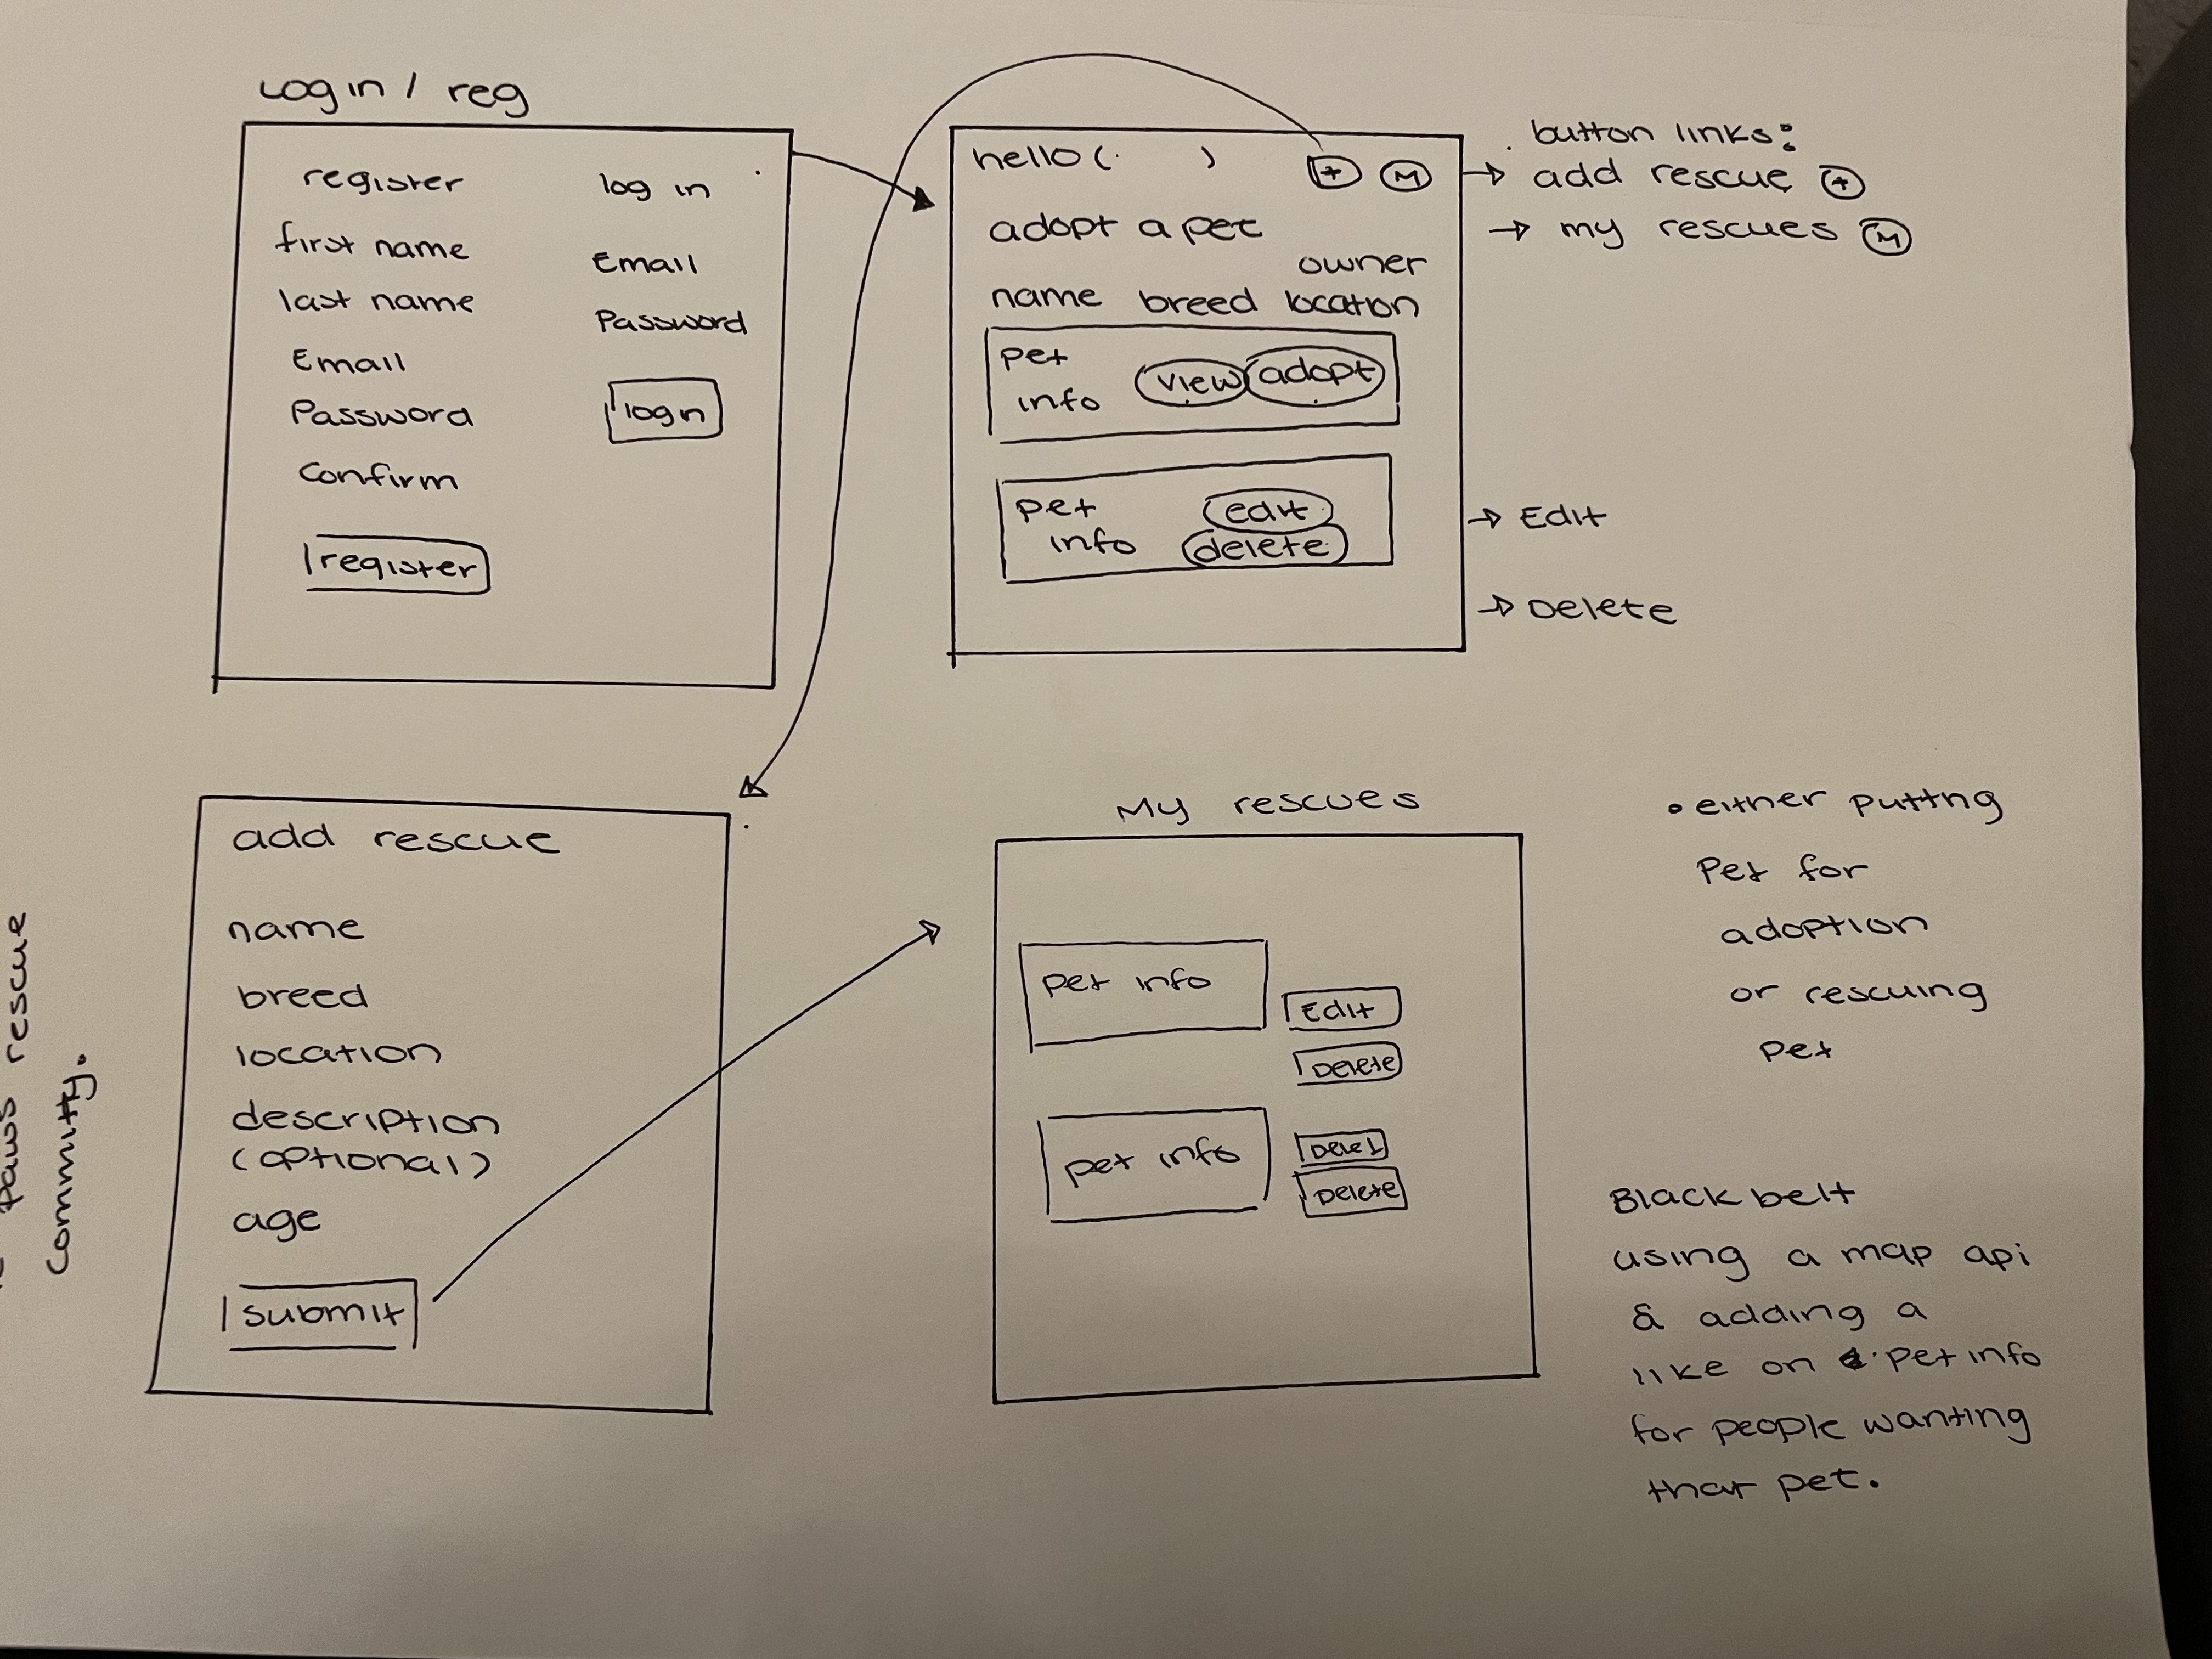 paws rescue
committy.
Login / reg
register
first name
last name
Email
Password
Confirm
register
log in
Email
Password
login
hello ( )
+ M
adopt a pet
owner
name breed location
pet
info view adopt
pet
info edit
delete
button links:
→ add rescue +
→ my rescues M
→ Edit
→ Delete
add rescue
name
breed
location
description
(optional)
age
submit
My rescues
pet info
Edit
Delete
pet info
Delete
• either putting
Pet for
adoption
or rescuing
pet
Black belt
using a map api
& adding a
like on pet info
for people wanting
that pet.